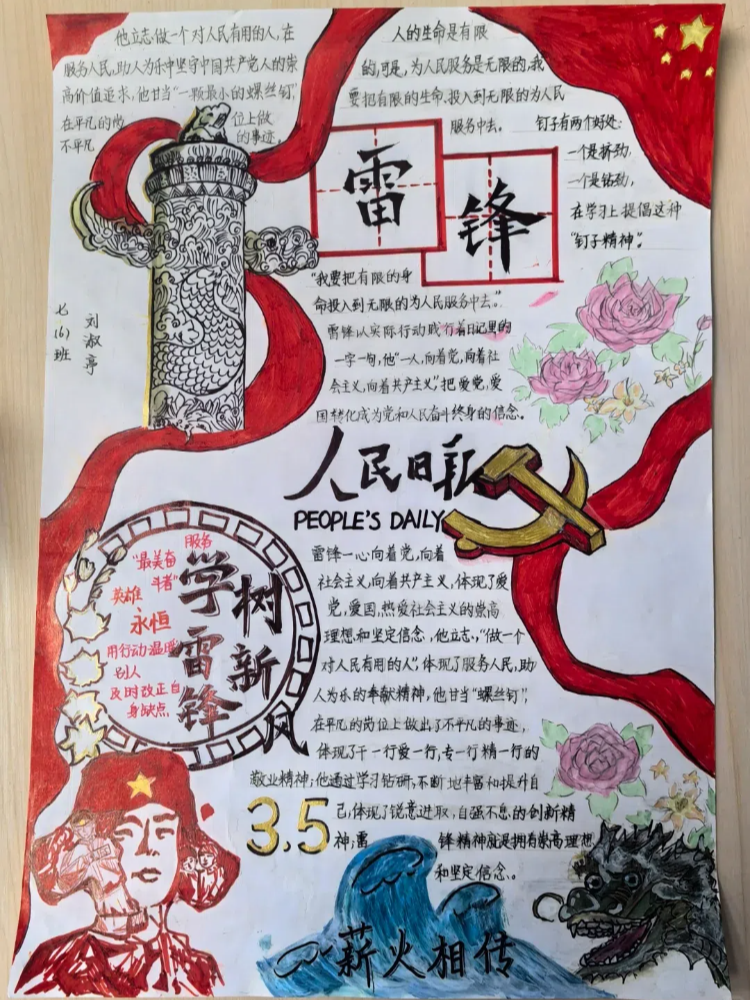 他立志做一个对人民有用的人,在
服务人民,助人为乐中坚守中国共产党人的崇
高价值追求,他甘当"一颗最小的螺丝钉",
在平凡的岗位上做
不平凡的事迹。
人的生命是有限
的,可是,为人民服务是无限的,我
要把有限的生命,投入到无限的为人民
服务中去。
钉子有两个好处:
一个是挤劲,
一个是钻劲,
在学习上提倡这种
"钉子精神"。
雷
锋
七(6)班
刘淑亭
"我要把有限的身
命投入到无限的为人民服务中去。"
雷锋以实际行动践行着日记里的
一字一句,他"一人,向着党,向着社
会主义,向着共产主义",把爱党,爱
国转化成为党和人民奋斗终身的信念。
人民日报
PEOPLE'S DAILY
服务
"最美奋
斗者"
英雄
永恒
用行动温暖
别人
及时改正自
身缺点
学雷锋
树新风
雷锋一心向着党,向着
社会主义,向着共产主义,体现了爱
党,爱国,热爱社会主义的崇高
理想和坚定信念,他立志,"做一个
对人民有用的人",体现了服务人民,助
人为乐的奉献精神,他甘当"螺丝钉",
在平凡的岗位上做出了不平凡的事迹,
体现了干一行爱一行,专一行精一行的
敬业精神;他通过学习钻研,不断地丰富和提升自
己,体现了锐意进取,自强不息的创新精
神;雷锋精神就是拥有崇高理想
和坚定信念。
3.5
薪火相传